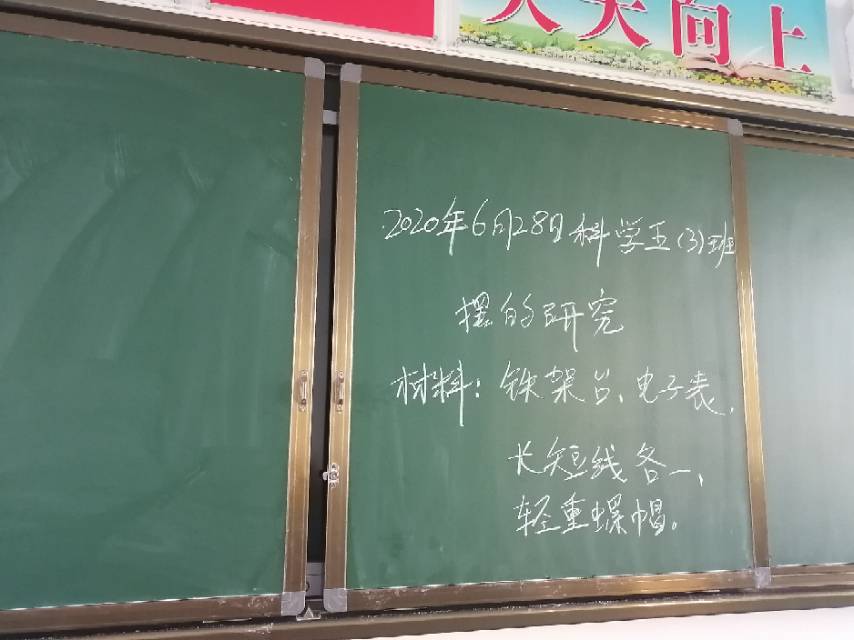 天天向上
2020年6月28日科学五(3)班
摆的研究
材料：铁架台、电子表、
长短线各一、
轻重螺帽。